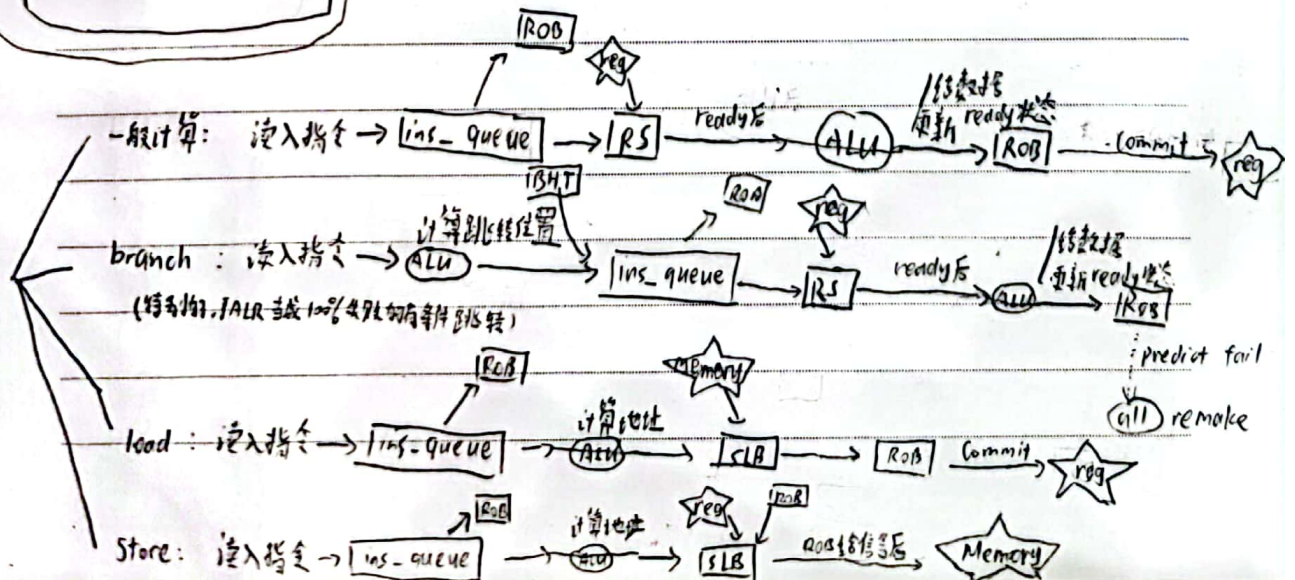 ROB
reg
一般计算: 读入指令 → ins_queue → RS ready后 → ALU 传数据 更新ready状态 → ROB commit → reg
BHT
ROB
reg
branch : 读入指令 → 计算跳转位置 ALU → ins_queue → RS ready后 → ALU 传数据 更新ready状态 → ROB
(特别的, JALR当成100%失败的有条件跳转)
predict fail
all remake
ROB
Memory
load : 读入指令 → ins_queue → 计算地址 ALU → SLB → ROB Commit → reg
ROB
reg
ROB
Store: 读入指令 → ins_queue → 计算地址 ALU → SLB ROB给信号后 → Memory